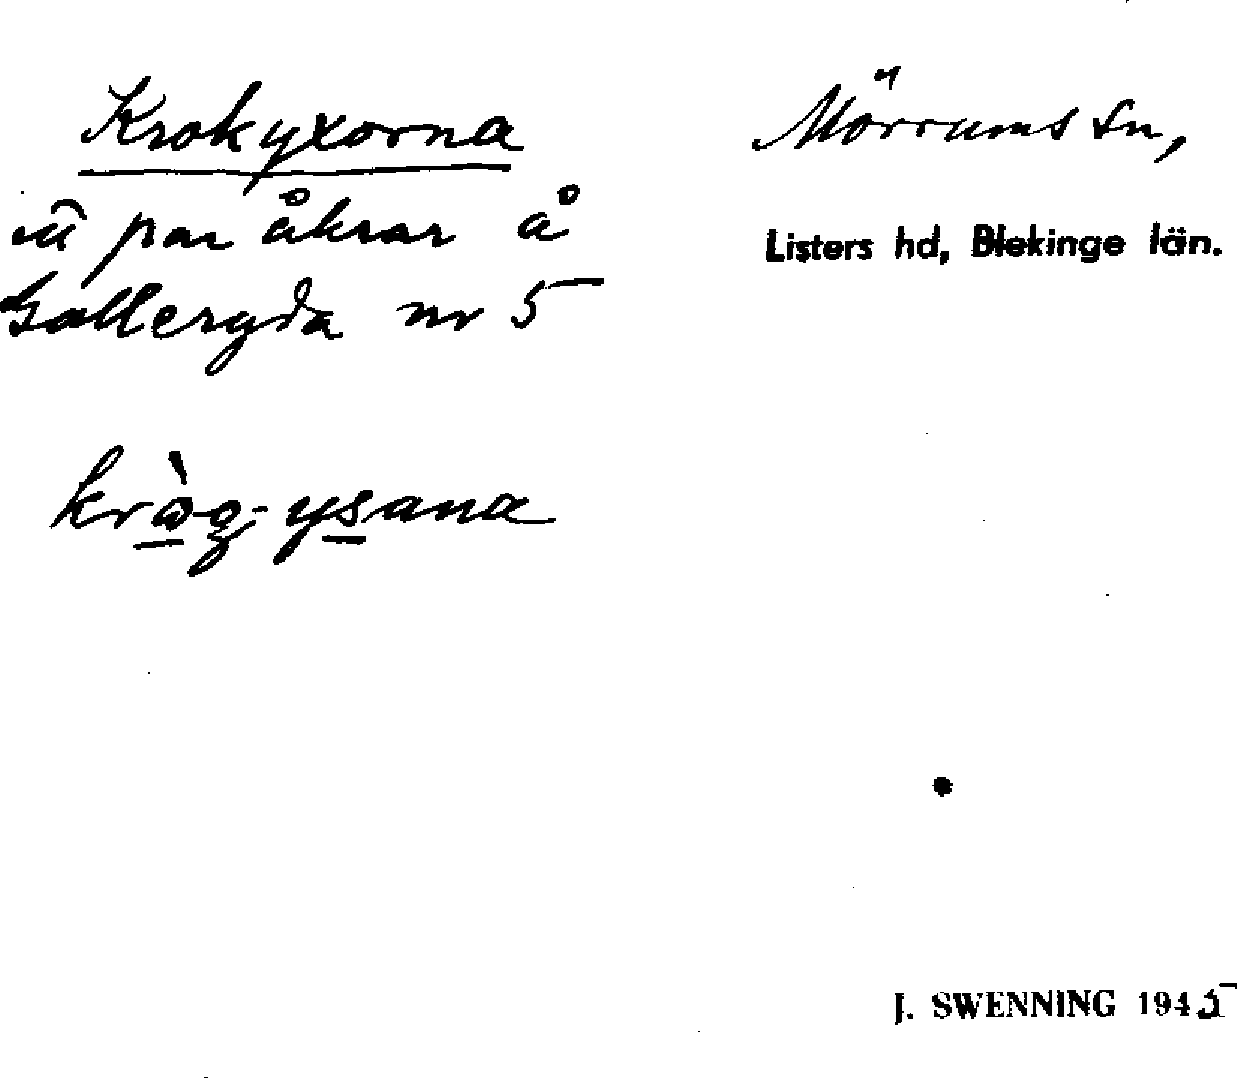 Krokyxorna
Mörrums sn,
par åkrar å
Listers hd, Blekinge län.
Galleryda nr 5
kròg-ysana
J. SWENNING 1945